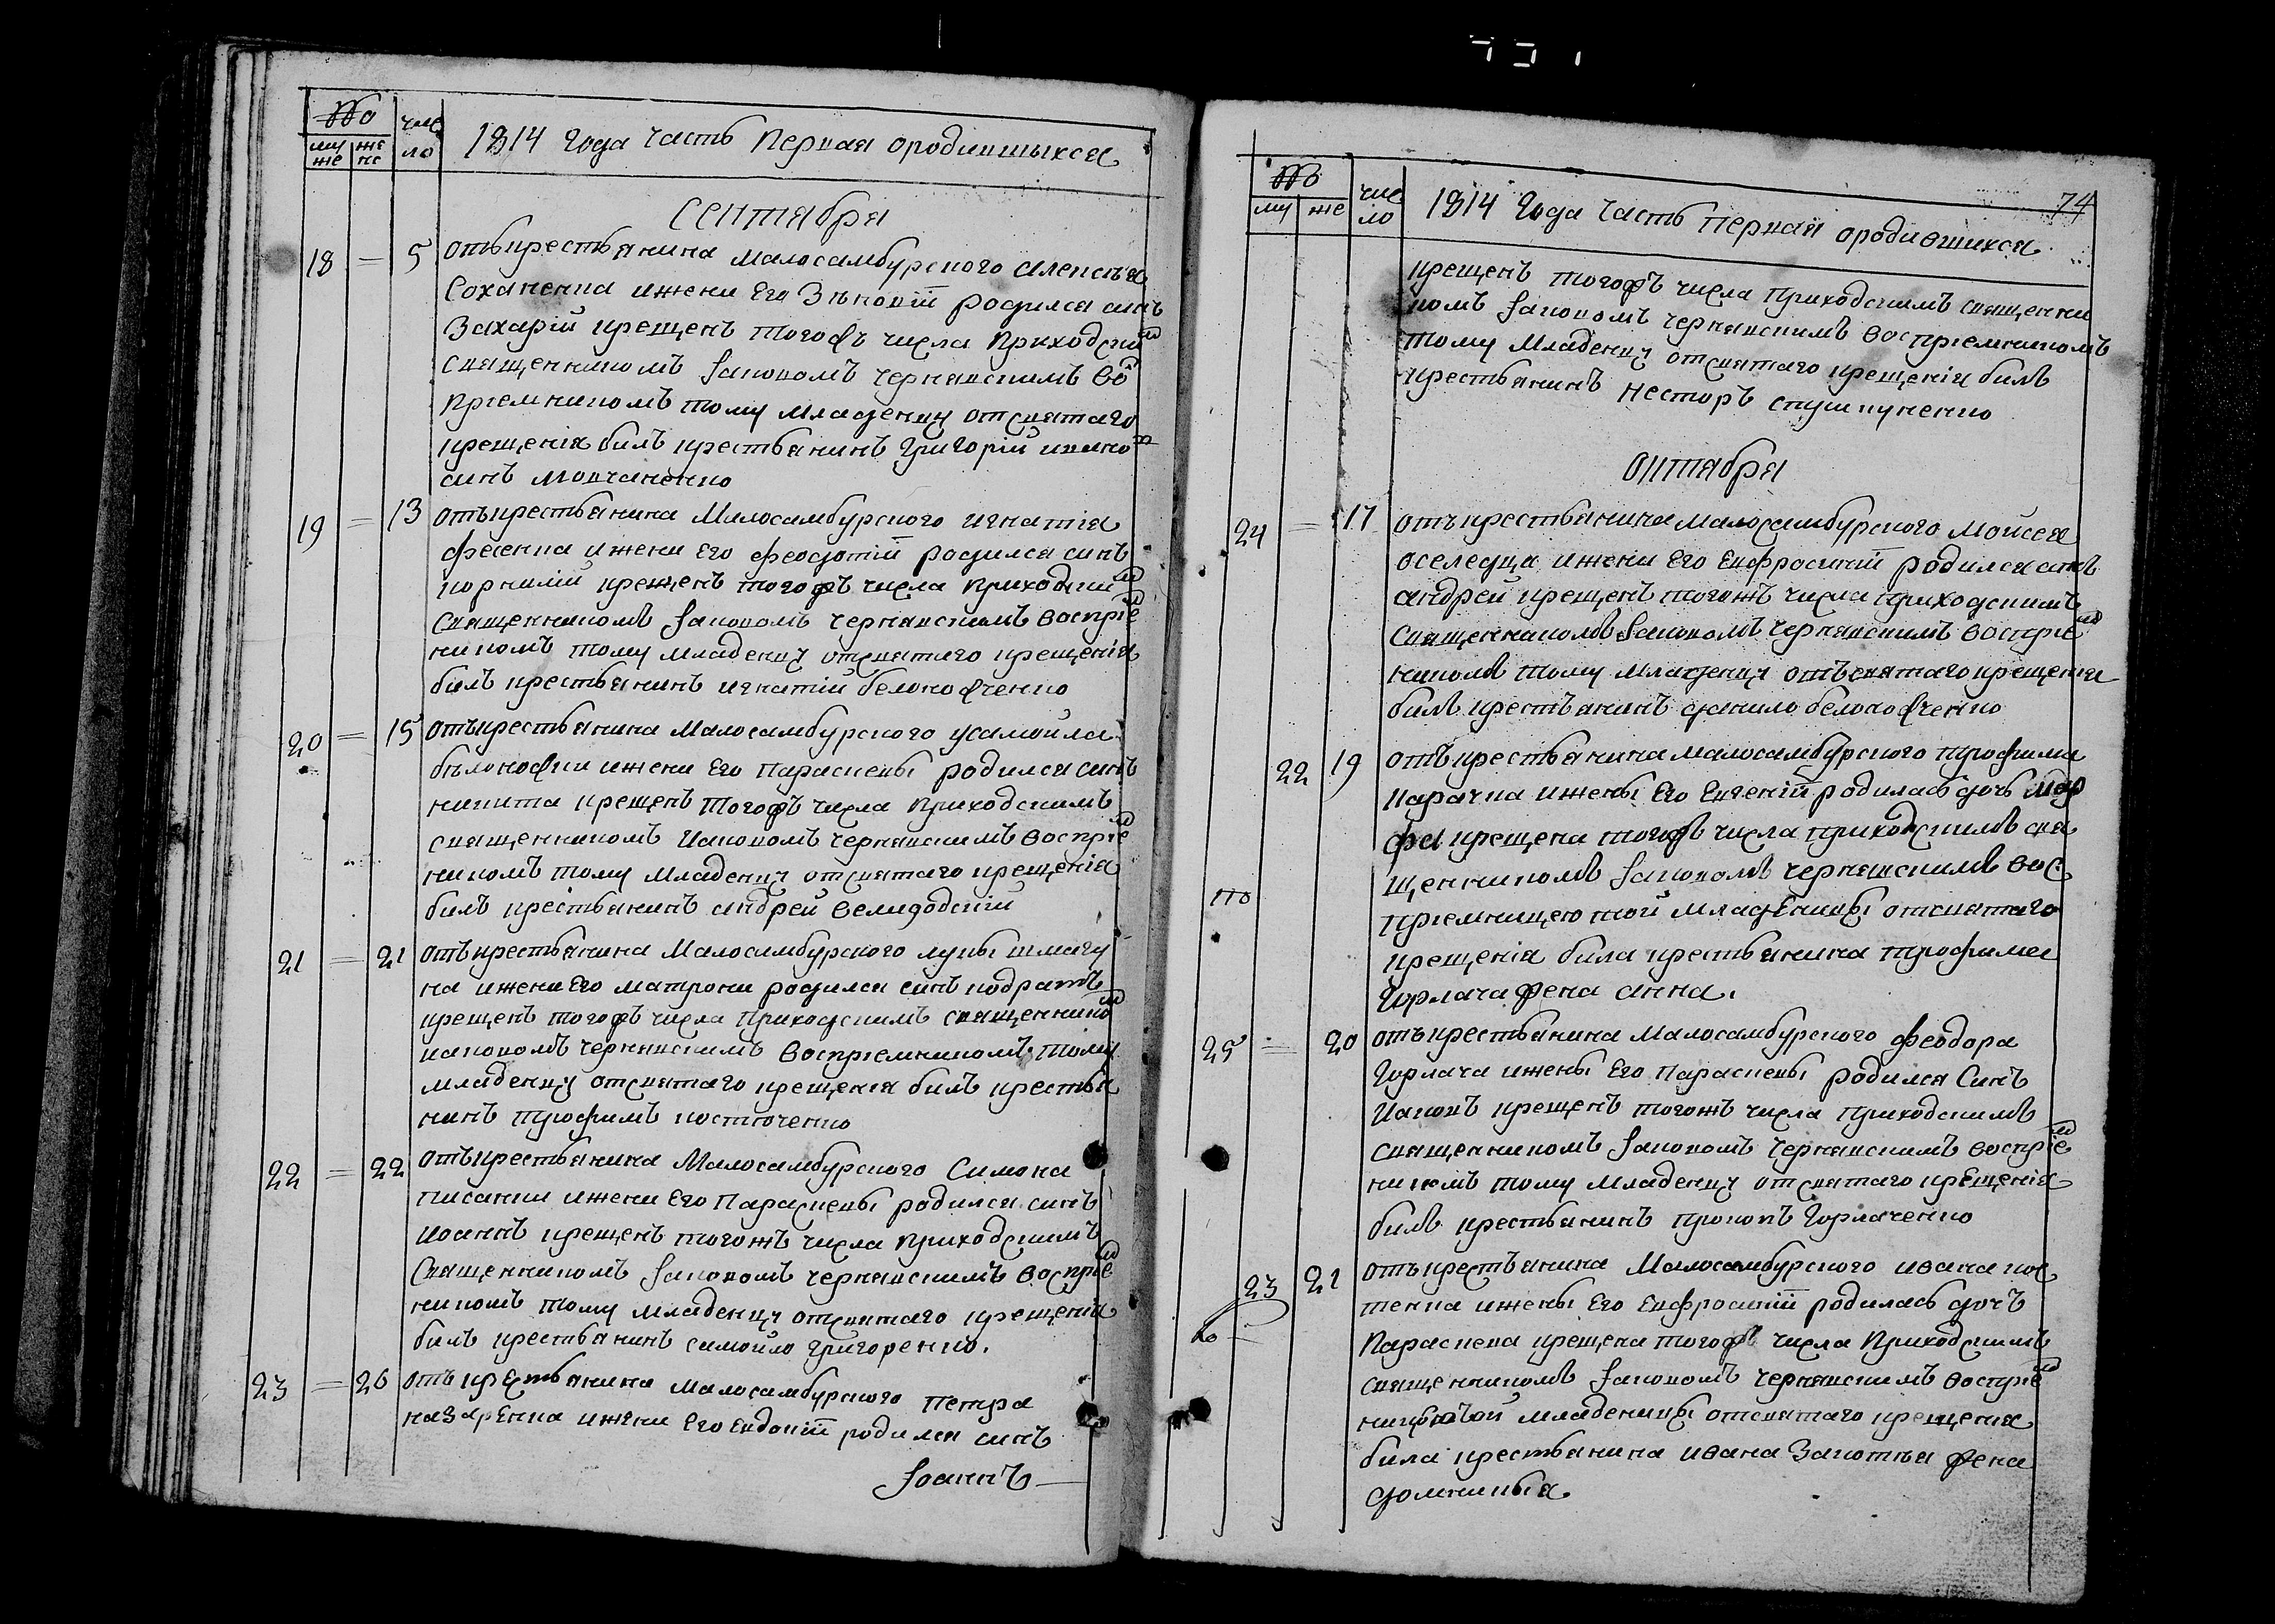 му же
же не
чис
ло
1814 года часть Первая ородившыхся
Сентября
18 5 отъкрестьянина Малосамбурского Алексѣя
Соханенка ижени Его Зѣновіи родился синъ
Захарій крещенъ тогожъ числа Приходским
священникомъ Іаковомъ чернявскимъ вос
приемникомъ тому младенцу отсвятаго
крещенія билъ крестьянинъ Григорій ивано
синъ Мовчаненко
19 13 отъкрестьянина Малосамбурского игнатія
фесенка ижени Его феодотіи родился синъ
корнилій крещенъ тогожъ числа Приходским
священникомъ Іаковомъ чернявскимъ воспріем
никомъ тому младенцу отсвятаго крещенія
билъ крестьянинъ игнатій белоножченко
20 15 отъкрестьянина Малосамбурского усамойла
бѣлоножки ижени Его Параскевы родился синъ
никита крещенъ тогожъ числа Приходскимъ
священникомъ Иаковомъ чернявскимъ воспріем
никомъ тому младенцу отсвятаго крещенія
билъ крестьянинъ андрей великодскій
21 21 отъкрестьянина Малосамбурского луки шмигу
на ижени Его матрони родился синъ кодратъ
крещенъ тогожъ числа приходскимъ священником
иаковомъ чернявскимъ воспріемникомъ тому
младенцу отсвятаго крещенія билъ крестья
нинъ трофимъ костюченко
22 22 отъкрестьянина Малосамбурского Симона
писанки ижени Его Параскевы родился синъ
иоаннъ крещенъ тогожъ числа приходскимъ
священникомъ Іаковомъ чернявскимъ воспріем
никомъ тому младенцу отсвятаго крещенія
билъ крестьянинъ самойло григоренко.
23 26 отъкрестьянина малосамбурского петра
назаренка ижени Его Евдокіи родился синъ
Іоаннъ
74
му же
чис
ло
1814 года часть первая ородившихся
крещенъ тогожъ числа приходскимъ священни
комъ Іаковомъ чернявскимъ воспріемникомъ
тому младенцу отсвятаго крещенія билъ
крестьянинъ несторъ
октября
24 17 отъкрестьянина малосамбурского Мойсея
оселедца ижени Его Евфросиніи родился синъ
андрей крещенъ тогожъ числа приходскимъ
священникомъ Іаковомъ чернявскимъ воспріем
никомъ тому младенцу отъсвятаго крещенія
билъ крестьянинъ данило белоножченко
22 19 отъкрестьянина малосамбурского трофима
Карачка ижены Его Евгеніи родилась дочь Мар
фа крещена тогожъ числа приходскимъ свя
щенникомъ Іаковомъ чернявскимъ вос
пріемницею той младеници отсвятаго
крещенія била крестьянина трофима
Горлача жена анна.
25 20 отъкрестьянина Малосамбурского феодора
Горлача ижены Его Параскевы родился Синъ
Иаковъ крещенъ тогожъ числа приходскимъ
священникомъ Іаковомъ чернявскимъ воспріем
никомъ тому младенцу отсвятаго крещенія
билъ крестьянинъ прокопъ Горлаченко
23 21 отъкрестьянина Малосамбурского ивана кос
тенка ижены Его Евфросиніи родилась дочъ
Параскева крещена тогожъ числа приходскимъ
священникомъ Іаковомъ чернявскимъ воспріем
ницею той младеници отсвятаго крещенія
била крестьянина ивана жена
домникия